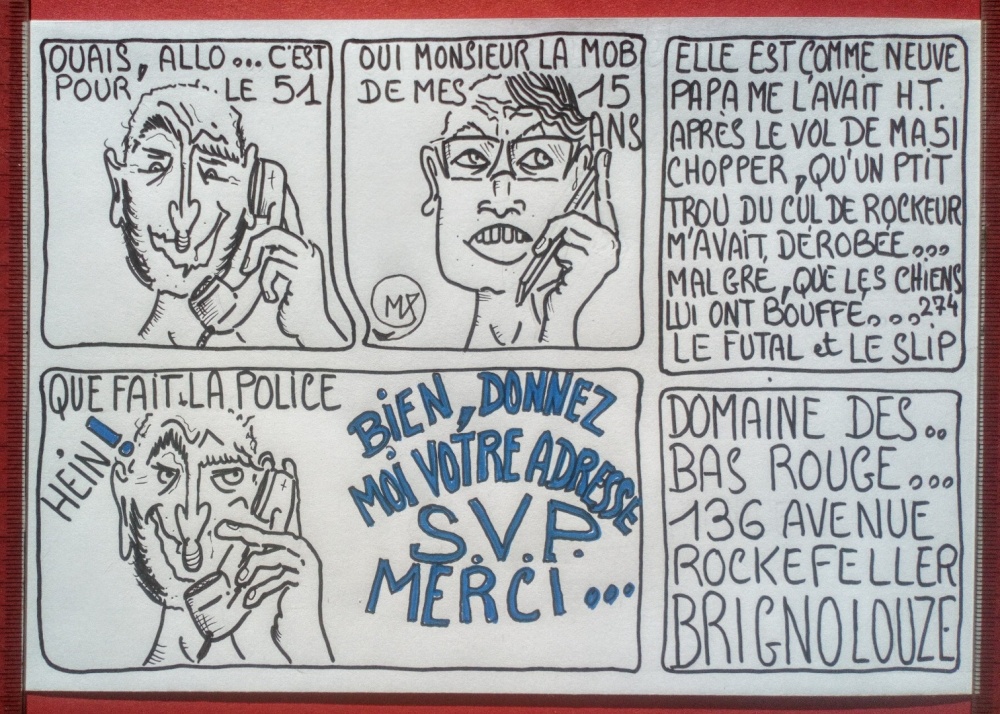 OUAIS, ALLO... C'EST
POUR LE 51
OUI MONSIEUR LA MOB
DE MES 15
ANS
ELLE EST COMME NEUVE
PAPA ME L'AVAIT H.T.
APRÈS LE VOL DE MA 51
CHOPPER, QU'UN PTIT
TROU DU CUL DE ROCKEUR
M'AVAIT, DÉROBÉE...
MALGRE, QUE LES CHIENS
LUI ONT BOUFFE....274
LE FUTAL et LE SLIP
QUE FAIT.LA.POLICE
HEIN!
BIEN, DONNEZ
MOI VOTRE ADRESSE
S.V.P.
MERCI...
DOMAINE DES..
BAS ROUGE...
136 AVENUE
ROCKEFELLER
BRIGNOLOUZE